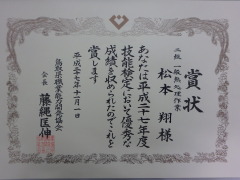 賞状
二級 一般熱処理作業
松本 翔 様
あなたは平成二十七年度
技能検定において優秀な
成績を収められたのでこれを
賞します
平成二十七年十二月一日
鳥取県職業能力開発協会
会長 藤縄匡伸